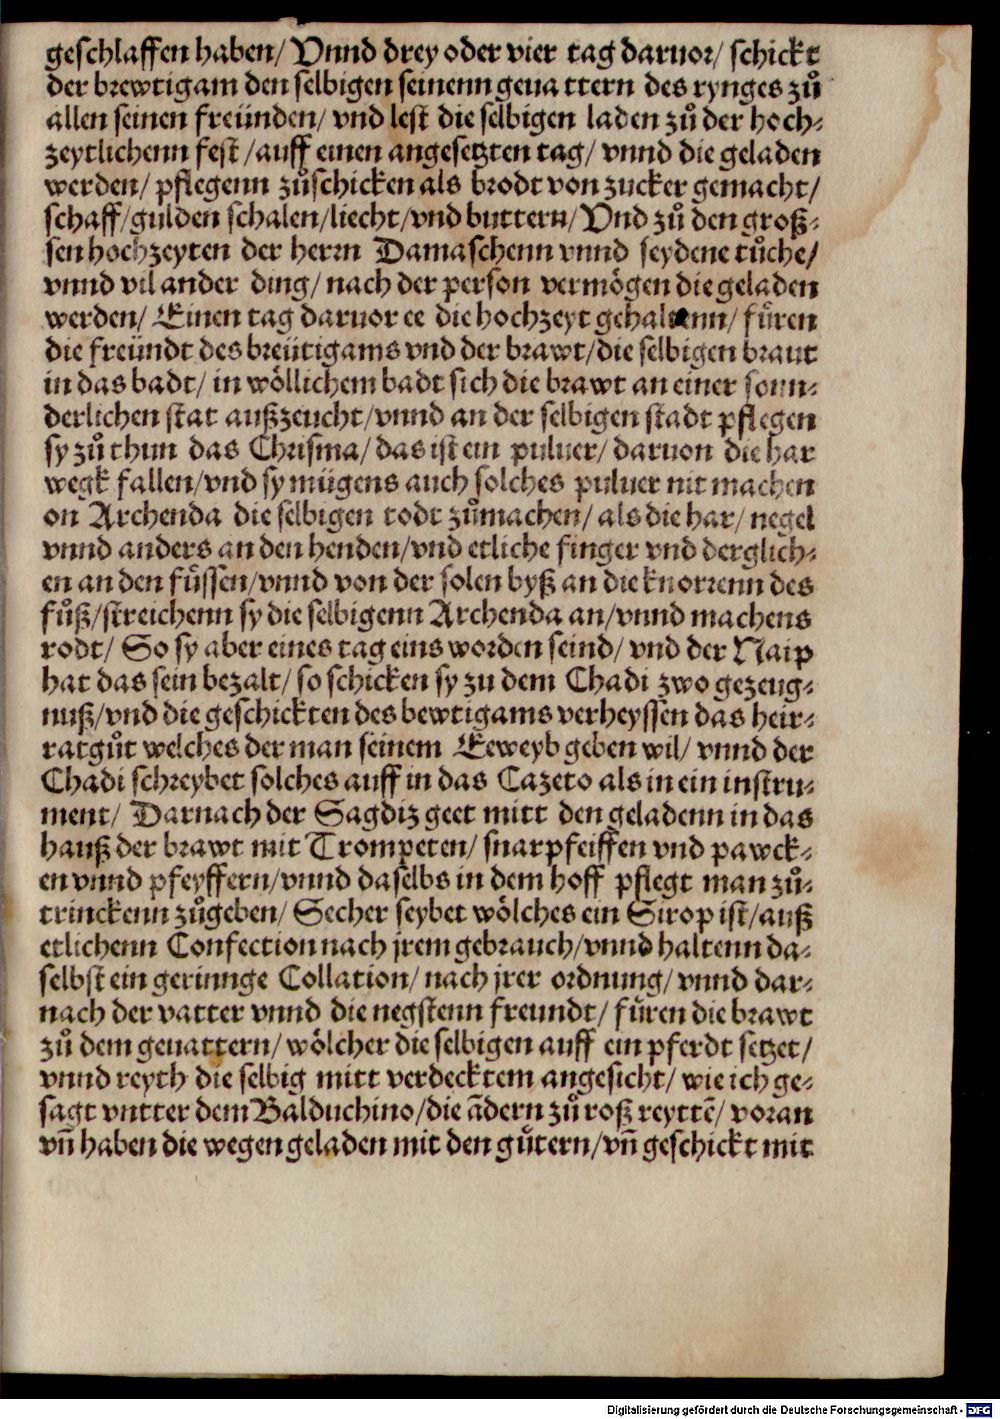 geschlaffen haben/ Vnnd drey oder vier tag daruor/ schickt
der brewtigam den selbigen seinenn geuattern des rynges zů
allen seinen freünden/ vnd lest die selbigen laden zů der hoch⸗
zeytlichenn fest/ auff einen angesetzten tag/ vnnd die geladen
werden/ pflegenn zůschicken als brodt von zucker gemacht/
schaff/ gulden schalen/ liecht/ vnd buttern/ Vnd zů den groß⸗
sen hochzeyten der herrn Damaschenn vnnd seydene tůche/
vnnd vil ander ding/ nach der person vermögen die geladen
werden/ Einen tag daruor ee die hochzeyt gehaltenn/ fůren
die freündt des breütigams vnd der brawt/ die selbigen braut
in das badt/ in wöllichem badt sich die brawt an einer sonn⸗
derlichen stat außzeucht/ vnnd an der selbigen stadt pflegen
sy zů thun das Chrisma/ das ist ein puluer/ daruon die har
wegk fallen/ vnd sy mügens auch solches puluer nit machen
on Archenda die selbigen rodt zůmachen/ als die har/ negel
vnnd anders an den henden/ vnd etliche finger vnd derglich⸗
en an den fůssen/ vnnd von der solen byß an die knorrenn des
fůß/ streichenn sy die selbigenn Archenda an/ vnnd machens
rodt/ So sy aber eines tag eins worden seind/ vnd der Naip
hat das sein bezalt/ so schicken sy zu dem Chadi zwo gezeug⸗
nuß/ vnd die geschickten des bewtigams verheyssen das heir⸗
ratgůt welches der man seinem Eeweyb geben wil/ vnnd der
Chadi schreybet solches auff in das Cazeto als in ein instru⸗
ment/ Darnach der Sagdiz geet mitt den geladenn in das
hauß der brawt mit Trompeten/ snarpfeiffen vnd pawck⸗
en vnnd pfeyffern/ vnnd daselbs in dem hoff pflegt man zů⸗
trinckenn zůgeben/ Secher seybet wölches ein Sirop ist/ auß
etlichenn Confection nach jrem gebrauch/ vnnd haltenn da⸗
selbst ein gerinnge Collation/ nach jrer ordnung/ vnnd dar⸗
nach der vatter vnnd die negstenn freundt/ fůren die brawt
zů dem geuattern/ wölcher die selbigen auff ein pferdt setzet/
vnnd reyth die selbig mitt verdecktem angesicht/ wie ich ge⸗
sagt vntter dem Balduchino/ die ãdern zů roß reyttẽ/ voran
vñ haben die wegen geladen mit den gůtern/ vñ geschickt mit
Digitalisierung gefördert durch die Deutsche Forschungsgemeinschaft - DFG